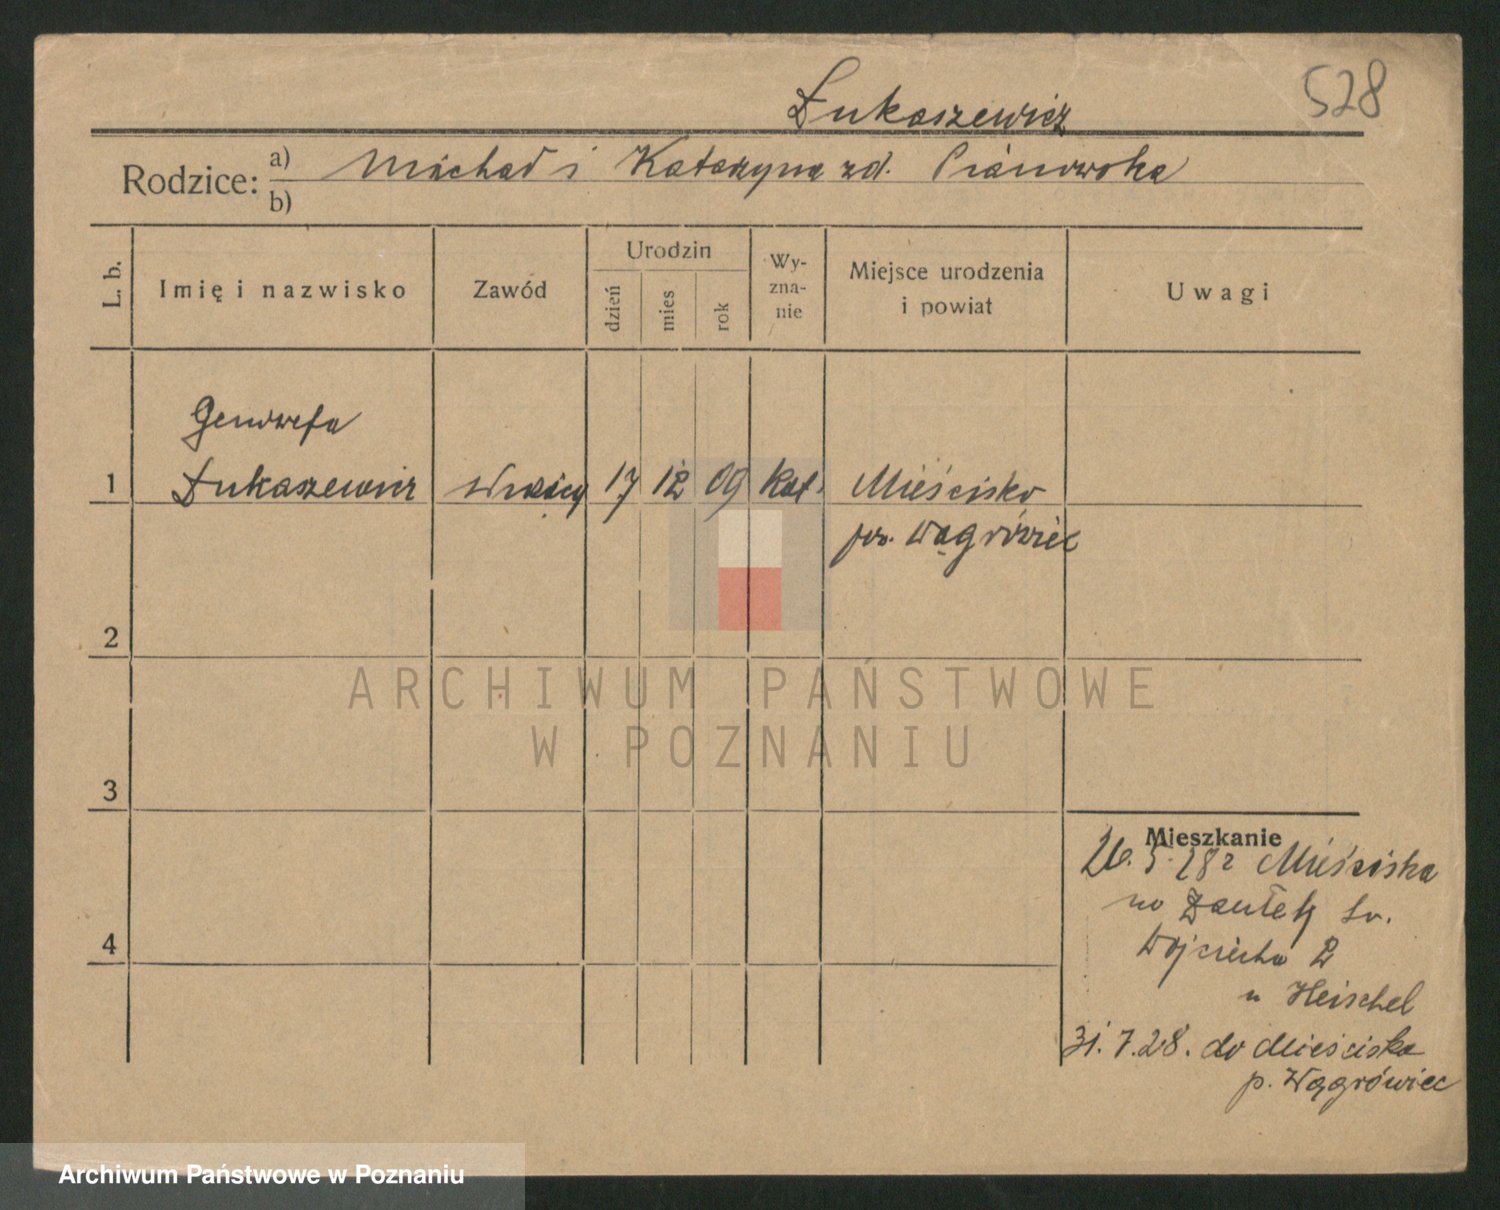 Łukaszewicz
528
Rodzice: a) Michał i Katarzyna zd. Pianowska
b)
L. b.
Imię i nazwisko
Zawód
Urodzin
dzień
mies
rok
Wy-
zna-
nie
Miejsce urodzenia
i powiat
Uwagi
Genowefa
1 Łukaszewicz 17 12 09 Kat. Mieścisko
pow. Wągrówiec
2
ARCHIWUM PAŃSTWOWE
W POZNANIU
3
Mieszkanie
26. 5. 28 z Mieściska
na Zaułek Św.
4
Wojciecha 2
u Heischel
31. 7. 28. do Mieściska
p. Wągrówiec
Archiwum Państwowe w Poznaniu